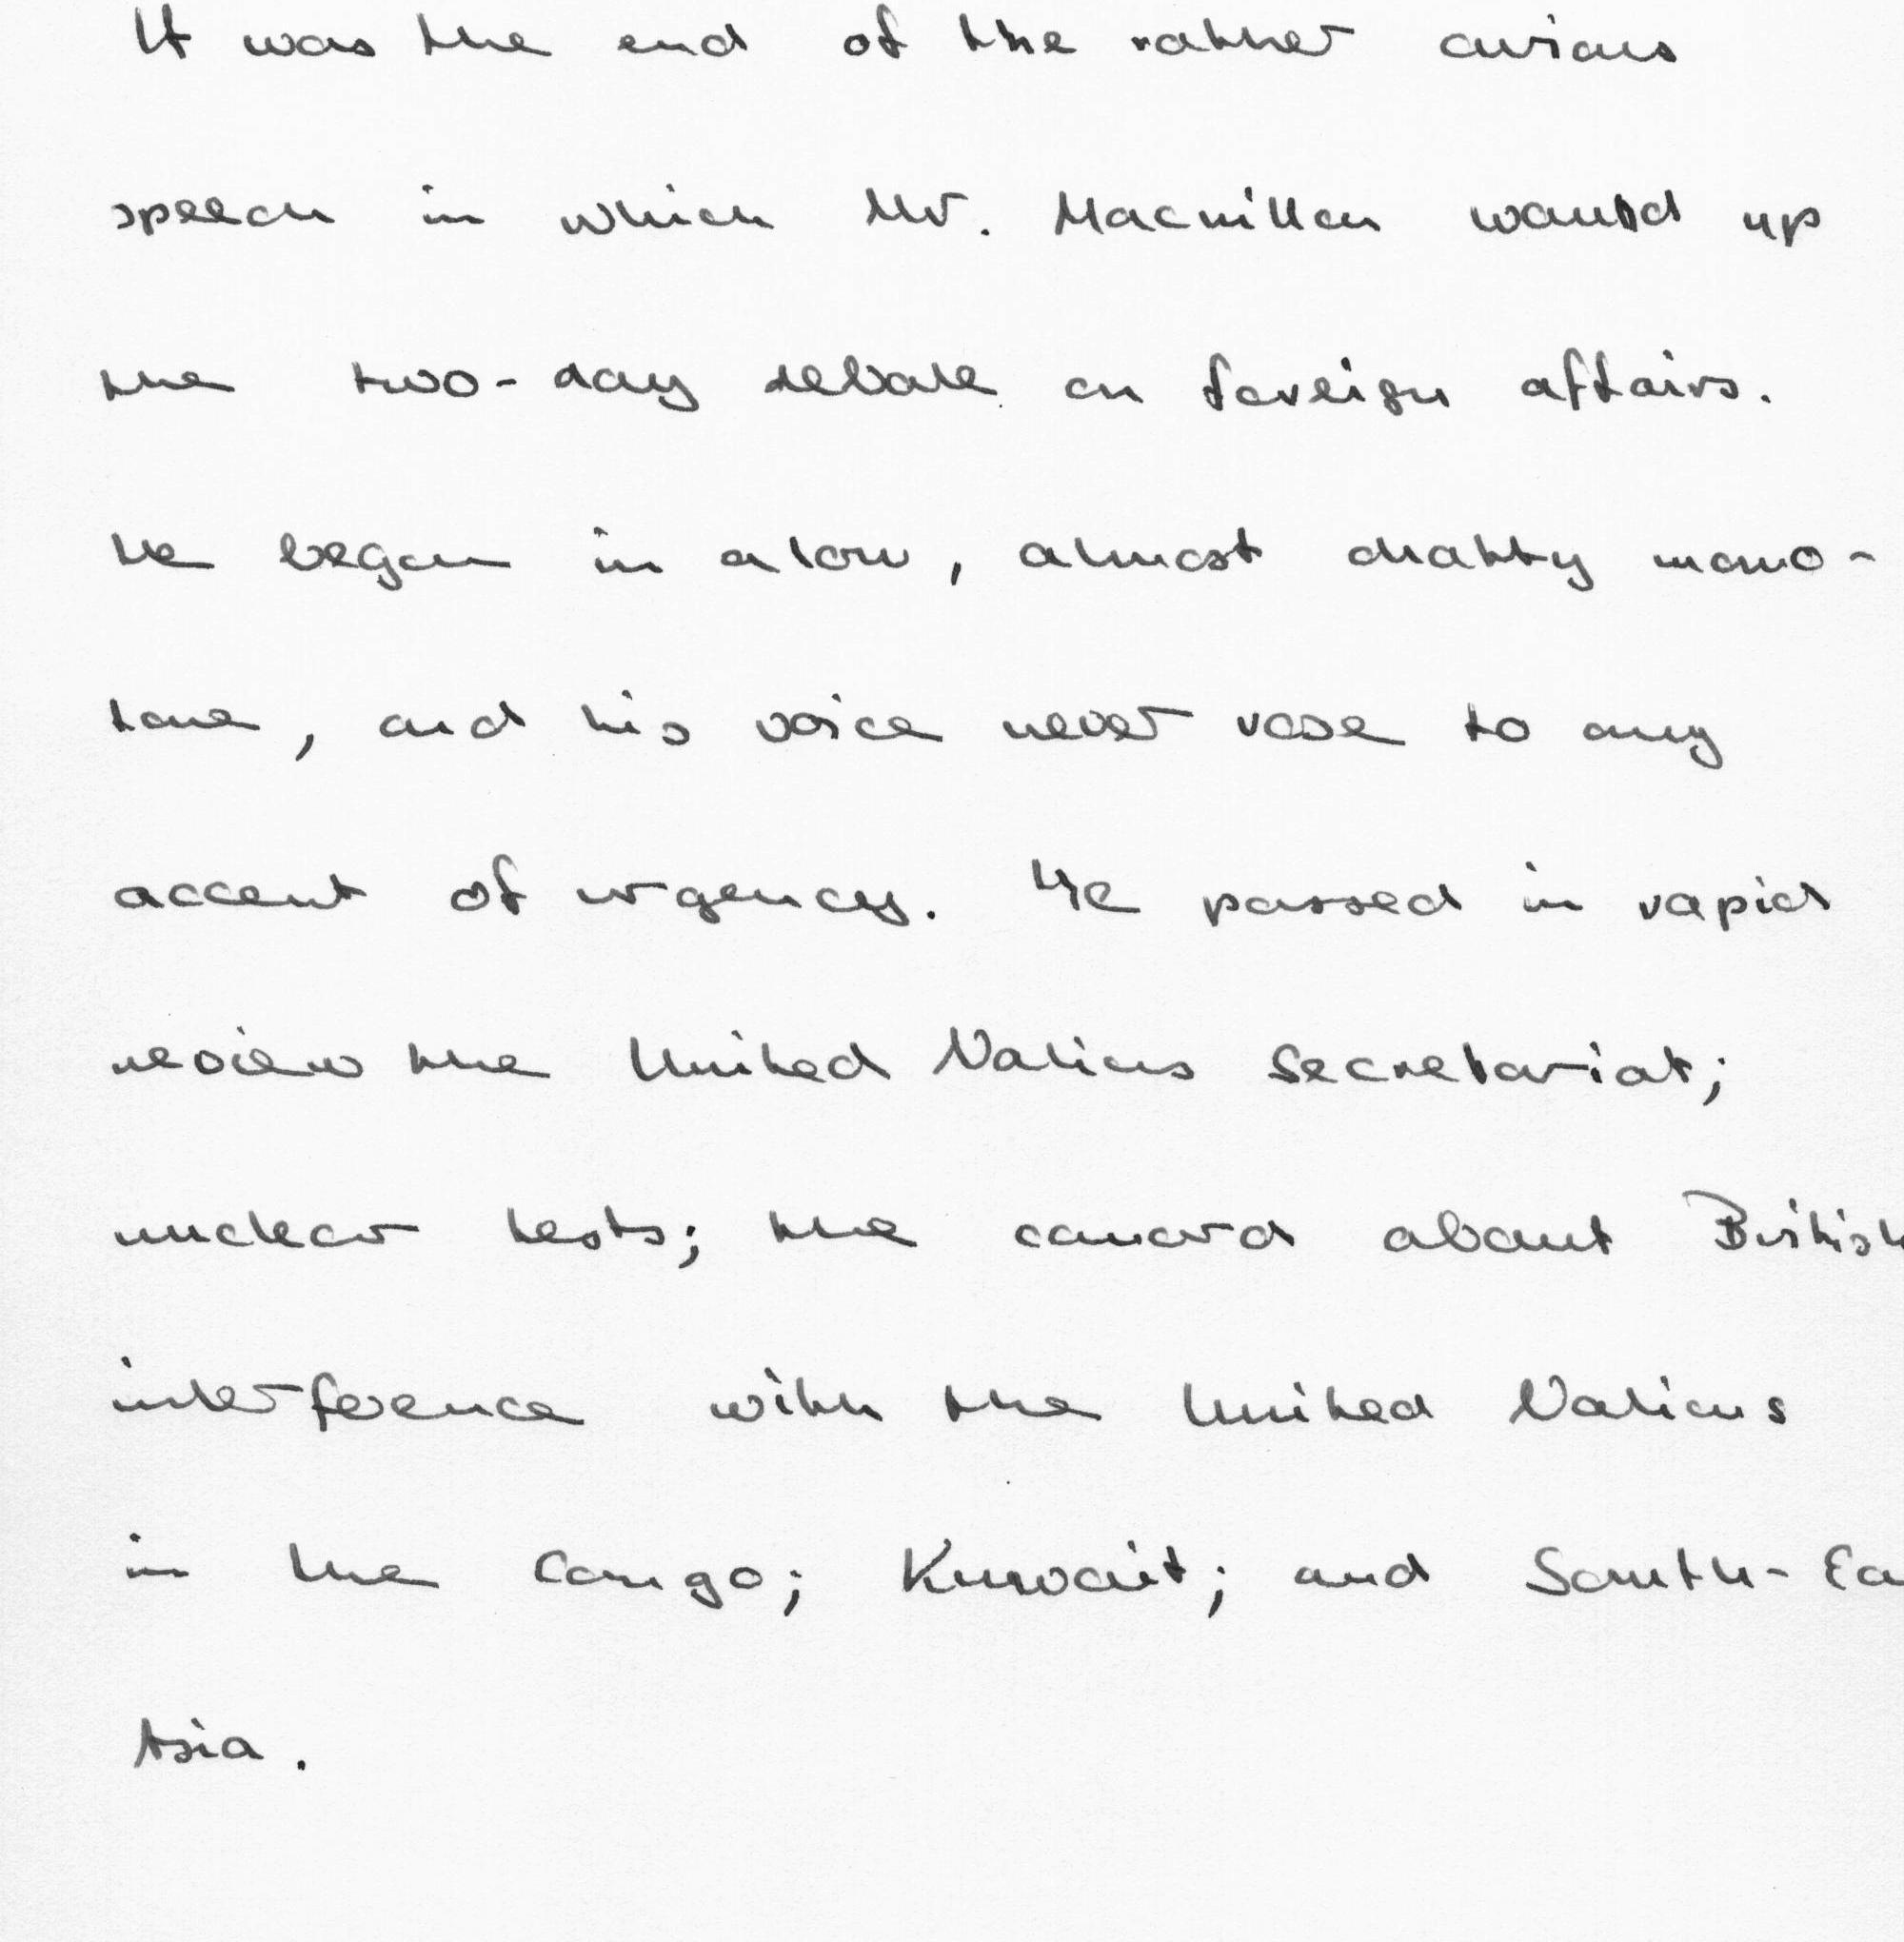 It was the end of the rather curious
speech in which Mr. Macmillan wound up
the two-day debate on foreign affairs.
He began in a low, almost chatty mono-
tone, and his voice never rose to any
accent of urgency. He passed in rapid
review the United Nations Secretariat;
nuclear tests; the canard about British
interference with the United Nations
in the Congo; Kuwait; and South-Ea
Asia.